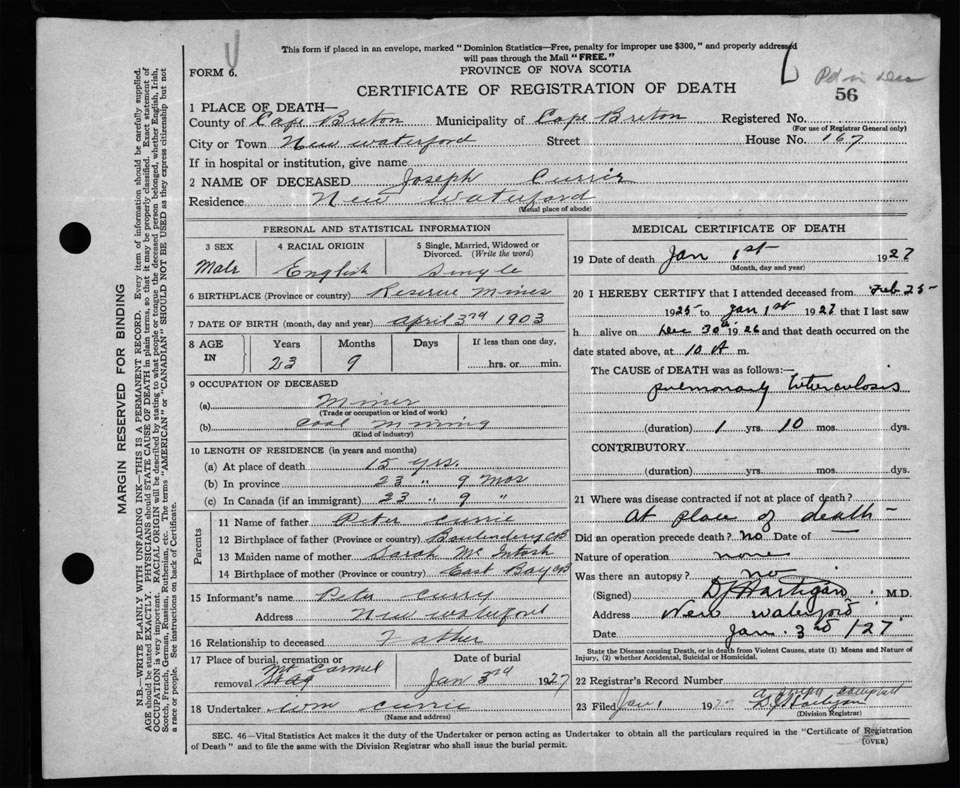 This form if placed in an envelope, marked "Dominion Statistics—Free, penalty for improper use $300," and properly addressed
will pass through the Mail "FREE."
FORM 6.
PROVINCE OF NOVA SCOTIA
CERTIFICATE OF REGISTRATION OF DEATH
56
1 PLACE OF DEATH—
County of Cape Breton Municipality of Cape Breton Registered No.
(For use of Registrar General only)
City or Town New Waterford Street House No. 167
If in hospital or institution, give name
2 NAME OF DECEASED Joseph Currie
Residence New Waterford
(Usual place of abode)
PERSONAL AND STATISTICAL INFORMATION
3 SEX 4 RACIAL ORIGIN 5 Single, Married, Widowed or
Divorced. (Write the word)
Male English Single
6 BIRTHPLACE (Province or country) Reserve Mines
7 DATE OF BIRTH (month, day and year) April 3rd 1903
8 AGE IN Years Months Days If less than one day,
23 9 hrs. or min.
9 OCCUPATION OF DECEASED
(a) Miner
(Trade or occupation or kind of work)
(b) Coal Mining
(Kind of industry)
10 LENGTH OF RESIDENCE (in years and months)
(a) At place of death 15 yrs.
(b) In province 23 " 9 mos
(c) In Canada (if an immigrant) 23 " 9 "
Parents
11 Name of father Peter Currie
12 Birthplace of father (Province or country) CB
13 Maiden name of mother Sarah McIntosh
14 Birthplace of mother (Province or country) East Bay CB
15 Informant's name Peter Curry
Address New Waterford
16 Relationship to deceased Father
17 Place of burial, cremation or
removal Mt Carmel
Date of burial
Jan 3rd 1927
18 Undertaker Wm Currie
(Name and address)
MEDICAL CERTIFICATE OF DEATH
19 Date of death Jan 1st 1927
(Month, day and year)
20 I HEREBY CERTIFY that I attended deceased from Feb 25-
1925 to Jan 1st 1927 that I last saw
h alive on Dec 30th 1926 and that death occurred on the
date stated above, at 10 A m.
The CAUSE OF DEATH was as follows:—
pulmonary tuberculosis
(duration) 1 yrs. 10 mos. dys.
CONTRIBUTORY
(duration) yrs. mos. dys.
21 Where was disease contracted if not at place of death?
At place of death -
Did an operation precede death? no Date of —
Nature of operation none
Was there an autopsy? no
(Signed) DJ Hartigan M.D.
Address New Waterford
Date Jan. 3rd /27
State the Disease causing Death, or in death from Violent Causes, state (1) Means and Nature of
Injury, (2) whether Accidental, Suicidal or Homicidal.
22 Registrar's Record Number
23 Filed Jan 1 1927 Campbell
DJ Hartigan
(Division Registrar)
SEC. 46—Vital Statistics Act makes it the duty of the Undertaker or person acting as Undertaker to obtain all the particulars required in the "Certificate of Registration
of Death" and to file the same with the Division Registrar who shall issue the burial permit.
(OVER)
MARGIN RESERVED FOR BINDING
N.B.—WRITE PLAINLY WITH UNFADING INK—THIS IS A PERMANENT RECORD. Every item of information should be carefully supplied.
AGE should be stated EXACTLY. PHYSICIANS should STATE CAUSE OF DEATH in plain terms, so that it may be properly classified. Exact statement of
OCCUPATION is very important. RACIAL ORIGIN will be described by stating to what people or tongue the deceased person belonged, whether English, Irish,
Scotch, French, German, Russian, Ruthenian, etc. The terms "AMERICAN" or "CANADIAN" SHOULD NOT BE USED as they express citizenship but not
a race or people. See instructions on back of Certificate.